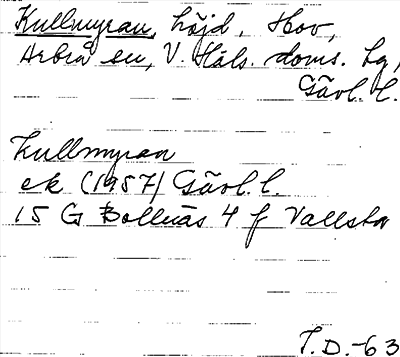 Kullmyran, höjd, Hov,
Arbrå sn, V. Häls. doms. tg,
Gävl. l.
Kullmyran
ek (1957) Gävl. l.
15 G Bollnäs 4 f Vallsta
T.D.-63